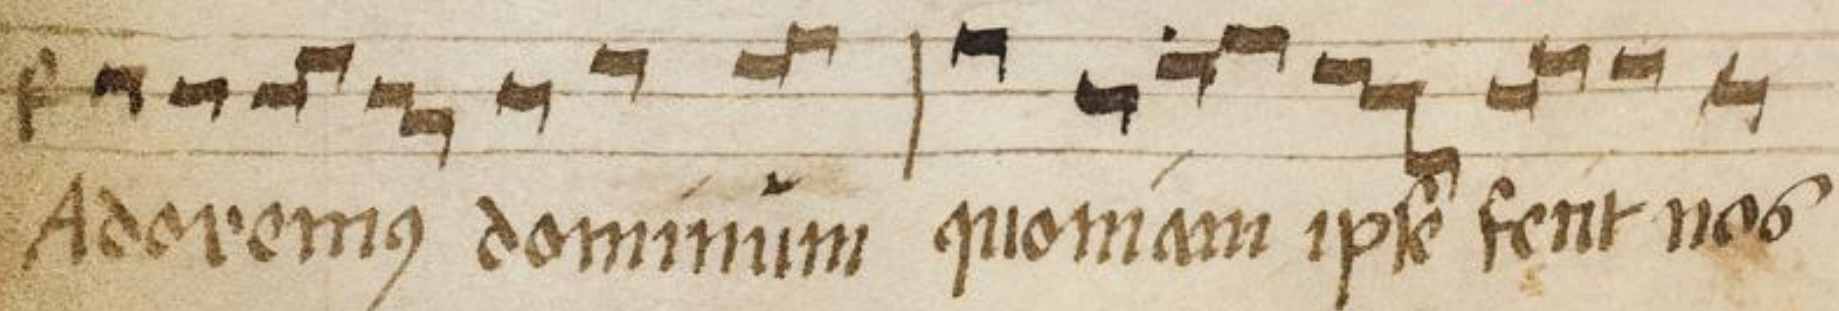 Adoremꝰ dominum quoniam ipse fecit nos